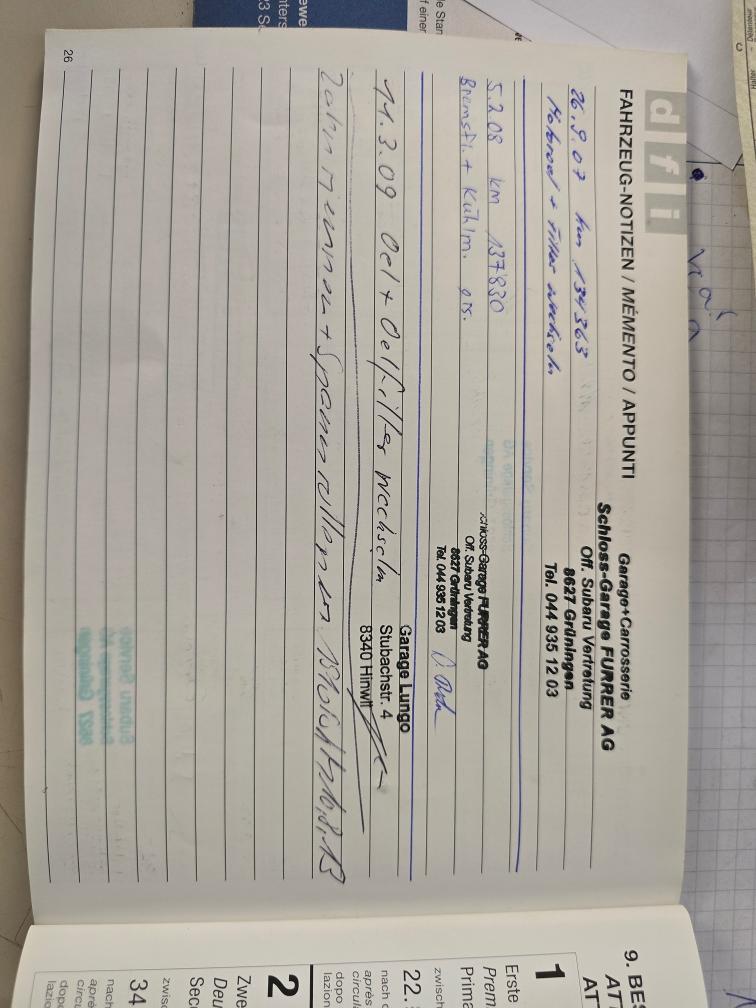 d f i
FAHRZEUG-NOTIZEN / MÉMENTO / APPUNTI
Garage+Carrosserie
Schloss-Garage FURRER AG
Off. Subaru Vertretung
8627 Grüningen
Tel. 044 935 12 03
26.9.07 km 134'363
Motoroel + Filter wechseln
5.2.08 km 137'830
Bremsfl. + Kühlm. ers.
Schloss-Garage FURRER AG
Off. Subaru Vertretung
8627 Grüningen
Tel. 044 935 12 03
11.3.09 Oel + Oelfilter wechseln
Garage Lungo
Stubachstr. 4
8340 Hinwil
Zahnriemen + Spannrollen
26
9. BES
1
Erste
Prem
Prima
zwisch
22.
nach
après
circul
dopo
lazion
2
Zwe
Deu
Sec
zwisc
34
nach
après
circu
dopo
lazio